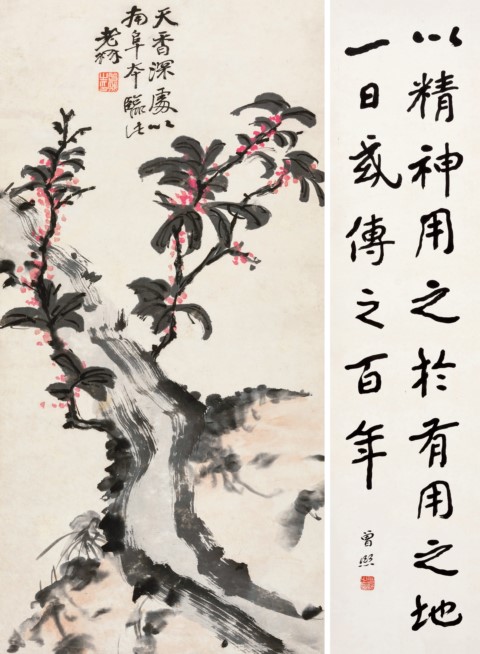 以精神用之於有用之地
一日或傳之百年
曾熙
天香深處以
南阜本臨
老